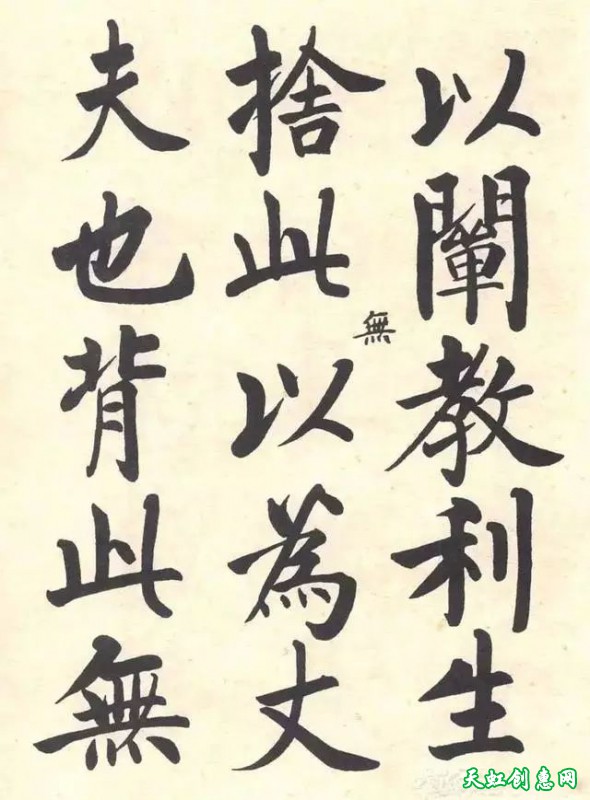 以闡教利生
捨此無以為丈
夫也背此無
天虹创惠网